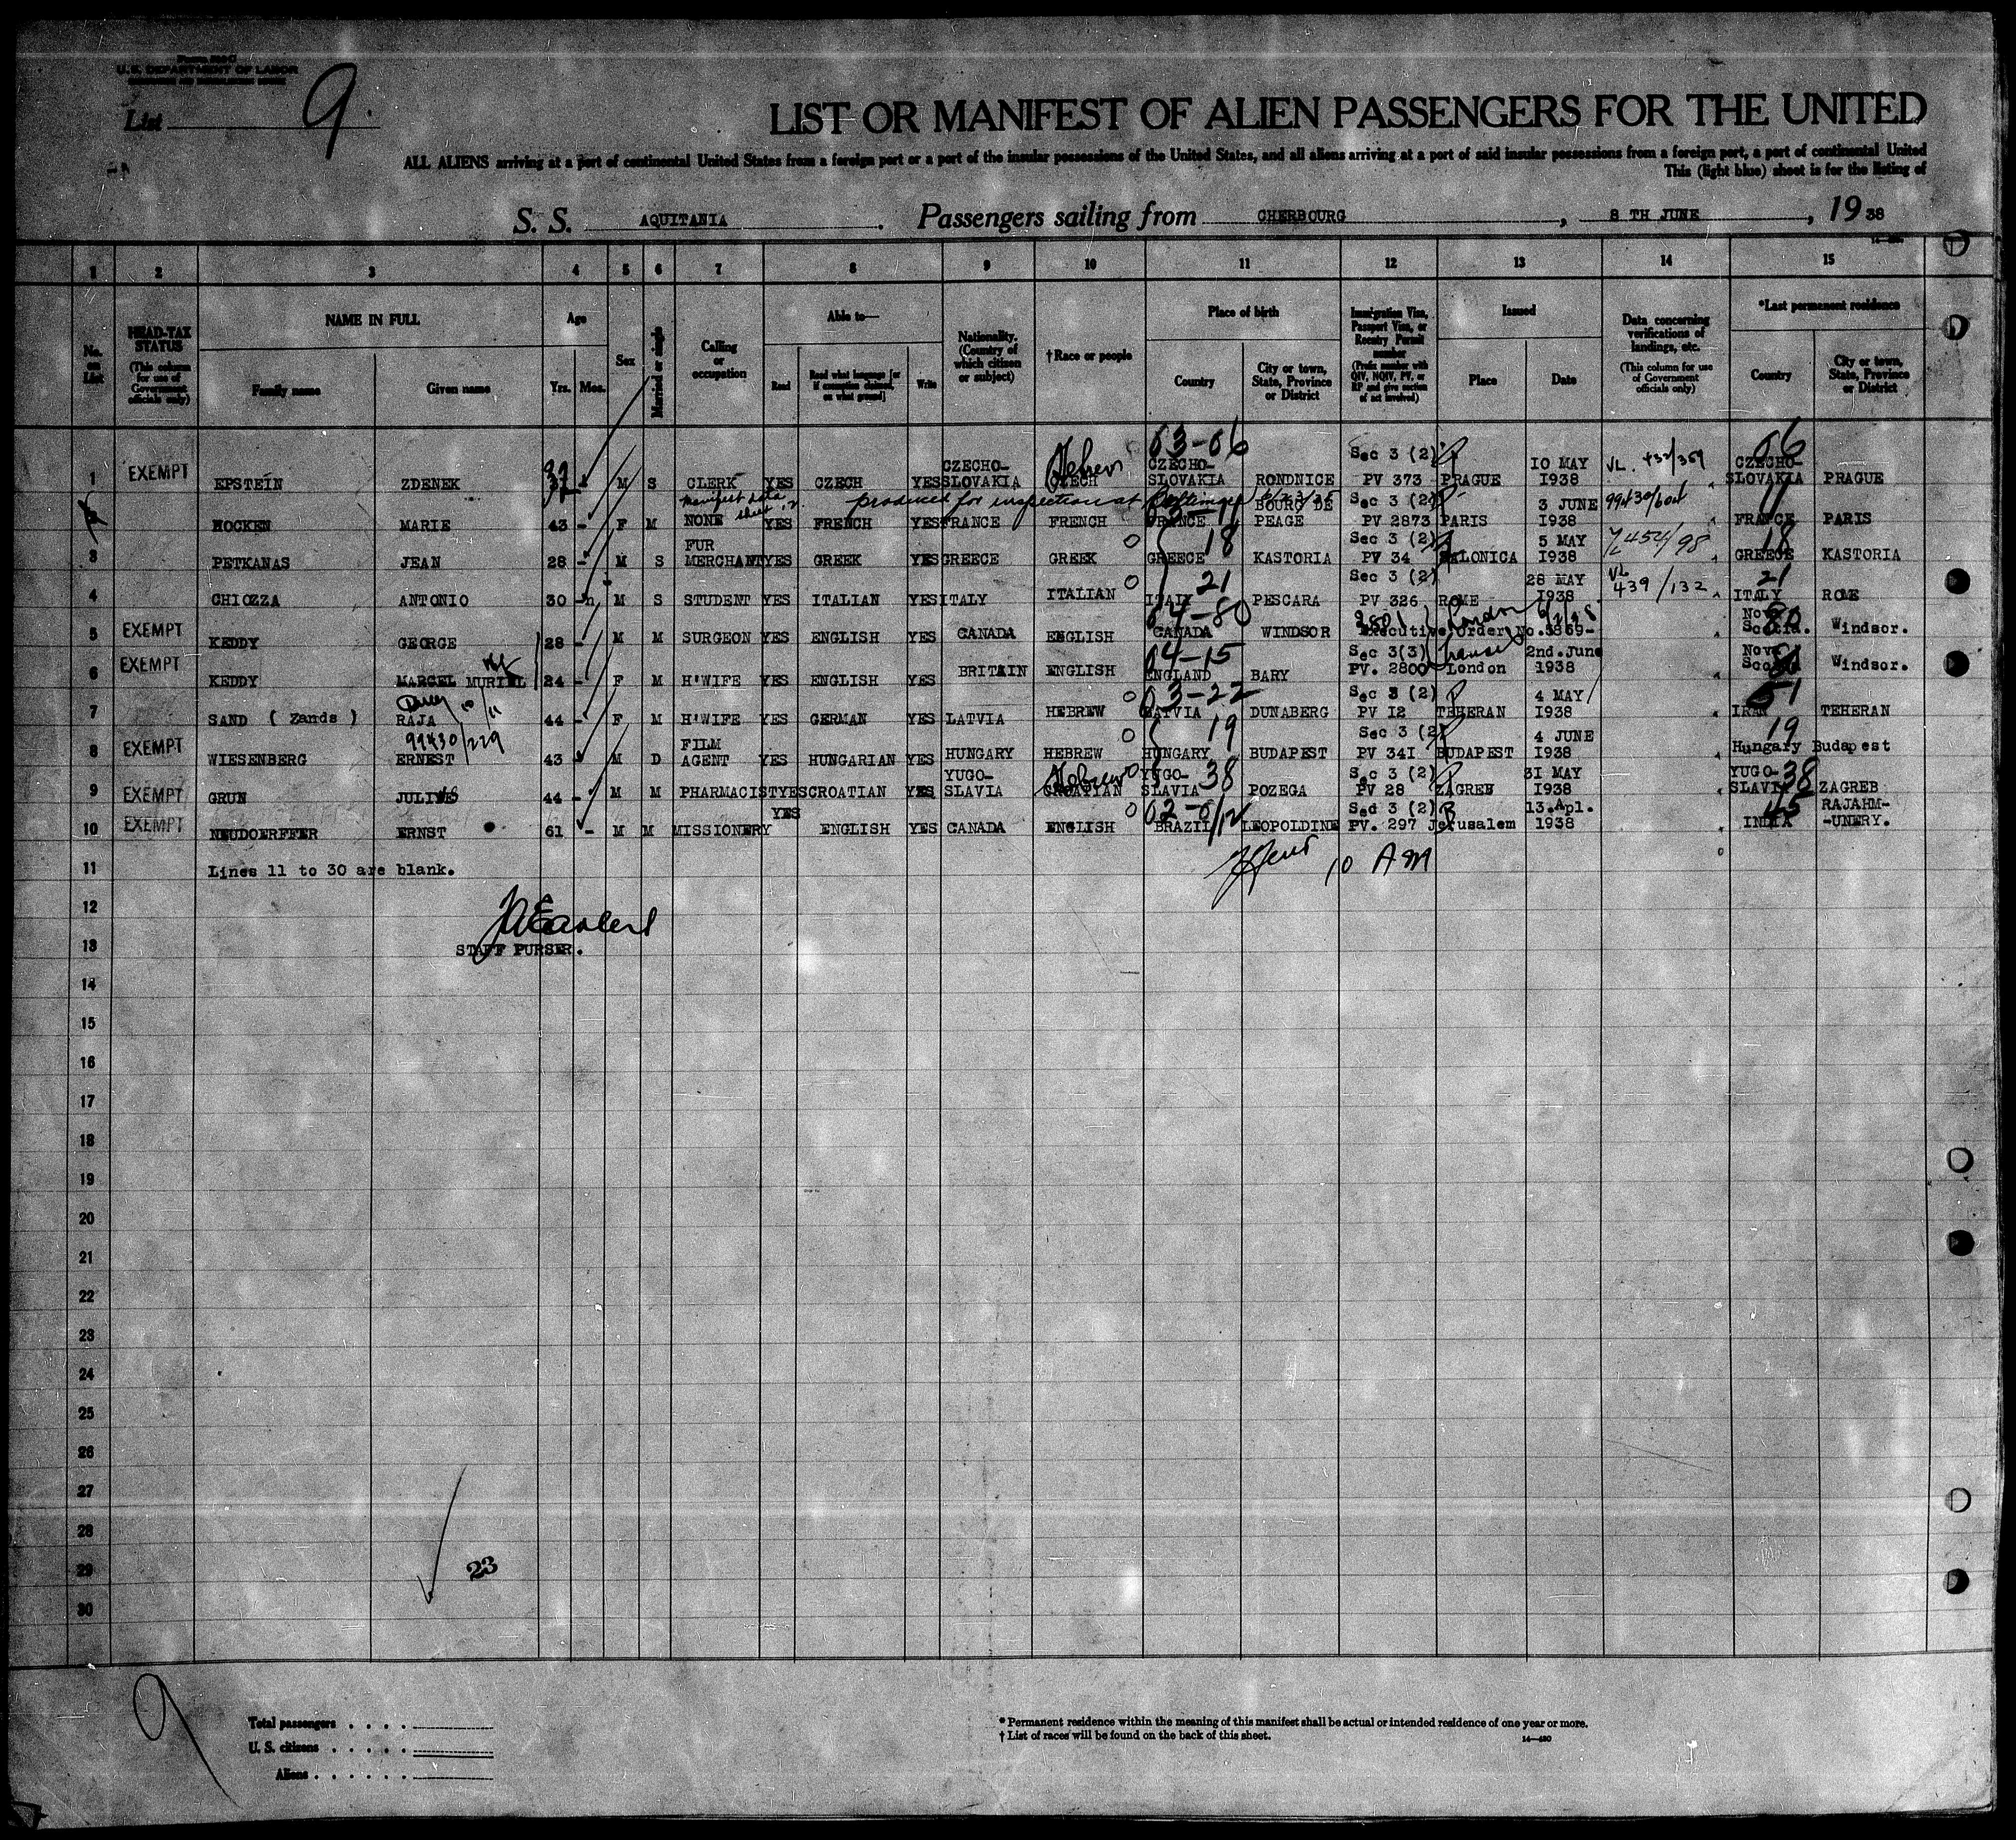 U. S. DEPARTMENT OF LABOR
List 9.
LIST OR MANIFEST OF ALIEN PASSENGERS FOR THE UNITED
ALL ALIENS arriving at a port of continental United States from a foreign port or a port of the insular possessions of the United States, and all aliens arriving at a port of said insular possessions from a foreign port, a port of continental United
This (light blue) sheet is for the listing of
S. S. AQUITANIA. Passengers sailing from CHERBOURG, 8 TH JUNE, 1938
1 2 3 4 5 6 7 8 9 10 11 12 13 14 15
No. on List
HEAD-TAX STATUS (This column for use of Government officials only)
NAME IN FULL Family name Given name
Age Yrs. Mos.
Sex
Married or single
Calling or occupation
Able to— Read Read what language [or if exemption claimed, on what ground] Write
Nationality. (Country of which citizen or subject)
†Race or people
Place of birth Country City or town, State, Province or District
Immigration Visa, Passport Visa, or Reentry Permit number (Prefix number with QIV, NQIV, PV, or RP and give section of act involved)
Issued Place Date
Data concerning verifications of landings, etc. (This column for use of Government officials only)
*Last permanent residence Country City or town, State, Province or District
03-06 06
1 EXEMPT EPSTEIN ZDENEK 37 M S CLERK YES CZECH YES CZECHO-SLOVAKIA CZECH Hebrew CZECHO-SLOVAKIA RONDNICE Sec 3 (2) PV 373 PRAGUE 10 MAY 1938 VL. 432/369 CZECHO-SLOVAKIA PRAGUE
manifest data sheet produced for inspection at
2 HOCKEN MARIE 43 - F M NONE YES FRENCH YES FRANCE FRENCH FRANCE 03-11 BOURG DE PEAGE Sec 3 (2) PV 2873 PARIS 3 JUNE 1938 FRANCE 11 PARIS
3 PETKANAS JEAN 28 - M S FUR MERCHANT YES GREEK YES GREECE GREEK GREECE 18 KASTORIA Sec 3 (2) PV 34 SALONICA 5 MAY 1938 454/98 GREECE 18 KASTORIA
4 CHIOZZA ANTONIO 30 - M S STUDENT YES ITALIAN YES ITALY ITALIAN ITALY 21 PESCARA Sec 3 (2) PV 326 ROME 28 MAY 1938 VL 439/132 ITALY 21 ROME
5 EXEMPT KEDDY GEORGE 28 - M M SURGEON YES ENGLISH YES CANADA ENGLISH CANADA 04-80 WINDSOR Executive Order No. 5869- London Nova Scotia. 80 Windsor.
6 EXEMPT KEDDY MARCEL MURIEL 24 - F M H'WIFE YES ENGLISH YES BRITAIN ENGLISH ENGLAND 04-15 BARY Sec 3(3) PV. 2800 London 2nd. June 1938 Nova Scotia Windsor.
7 SAND ( Zands ) RAJA 44 - F M H'WIFE YES GERMAN YES LATVIA HEBREW LATVIA 03-22 DUNABERG Sec 3 (2) PV I2 TEHERAN 4 MAY 1938 IRAN 51 TEHERAN
99430/229
8 EXEMPT WIESENBERG ERNEST 43 M D FILM AGENT YES HUNGARIAN YES HUNGARY HEBREW HUNGARY 19 BUDAPEST Sec 3 (2) PV 34I BUDAPEST 4 JUNE 1938 Hungary 19 Budapest
9 EXEMPT GRUN JULIUS 44 - M M PHARMACIST YES CROATIAN YES YUGO-SLAVIA CROATIAN Hebrew YUGO-SLAVIA 38 POZEGA Sec 3 (2) PV 28 ZAGREB 31 MAY 1938 YUGO-SLAVIA 38 ZAGREB
10 EXEMPT NEUDOERFFER ERNST 61 - M M MISSIONERY YES ENGLISH YES CANADA ENGLISH BRAZIL LEOPOLDINE Sec 3 (2) PV. 297 Jerusalem 13.Apl. 1938 INDIA 45 RAJAHM--UNERY.
10 AM
11 Lines 11 to 30 are blank.
12
13 STAFF PURSER.
14
15
16
17
18
19
20
21
22
23
24
25
26
27
28
29
30
23
9
Total passengers . . . .
U. S. citizens . . . . .
Aliens . . . . . .
* Permanent residence within the meaning of this manifest shall be actual or intended residence of one year or more.
† List of races will be found on the back of this sheet.
14—480